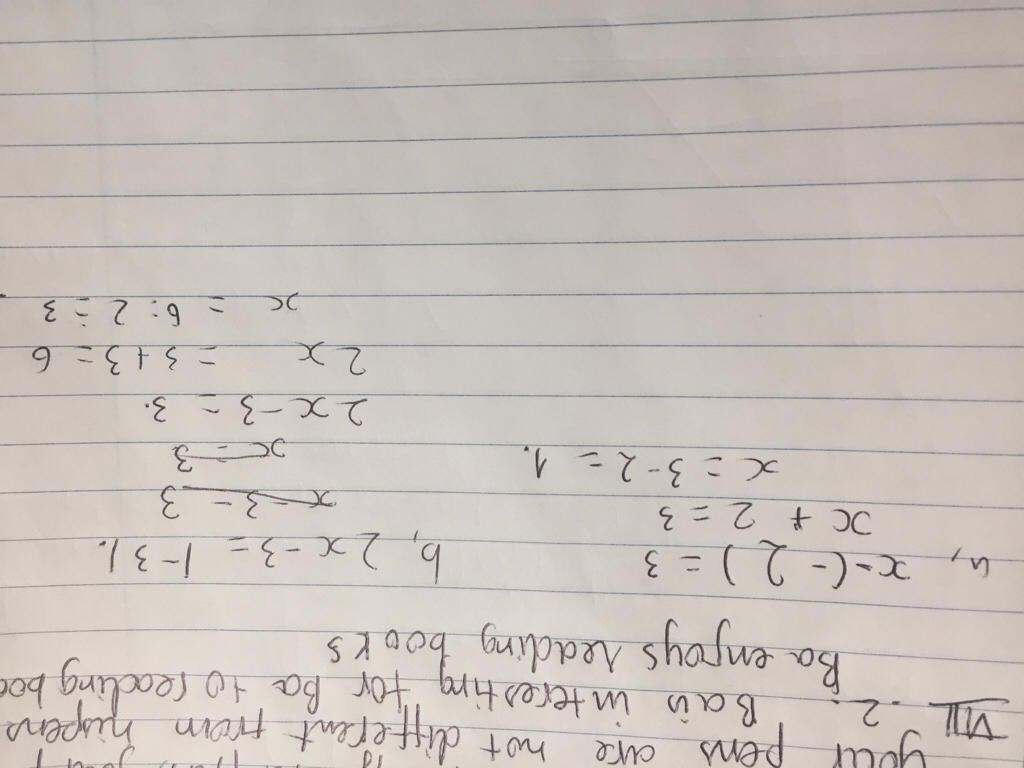 your pens are not different from his pens
VIII. 2. Ba is interesting for Ba to reading boo
Ba enjoys reading books
a, x-(-2) = 3
x + 2 = 3
x = 3-2 = 1.
b, 2x-3 = |-3|.
x-3 = 3
x = 3
2x-3 = 3.
2x = 3+3 = 6
x = 6:2 = 3